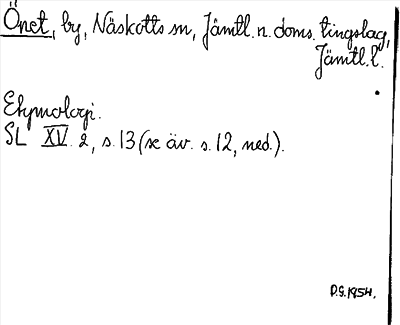 Önet, by, Näskotts sn, Jämtl. n. doms. tingslag,
Jämtl. l.
Etymologi.
SL XV. 2, s. 13 (se äv. s. 12, ned.).
D.S. 1954.